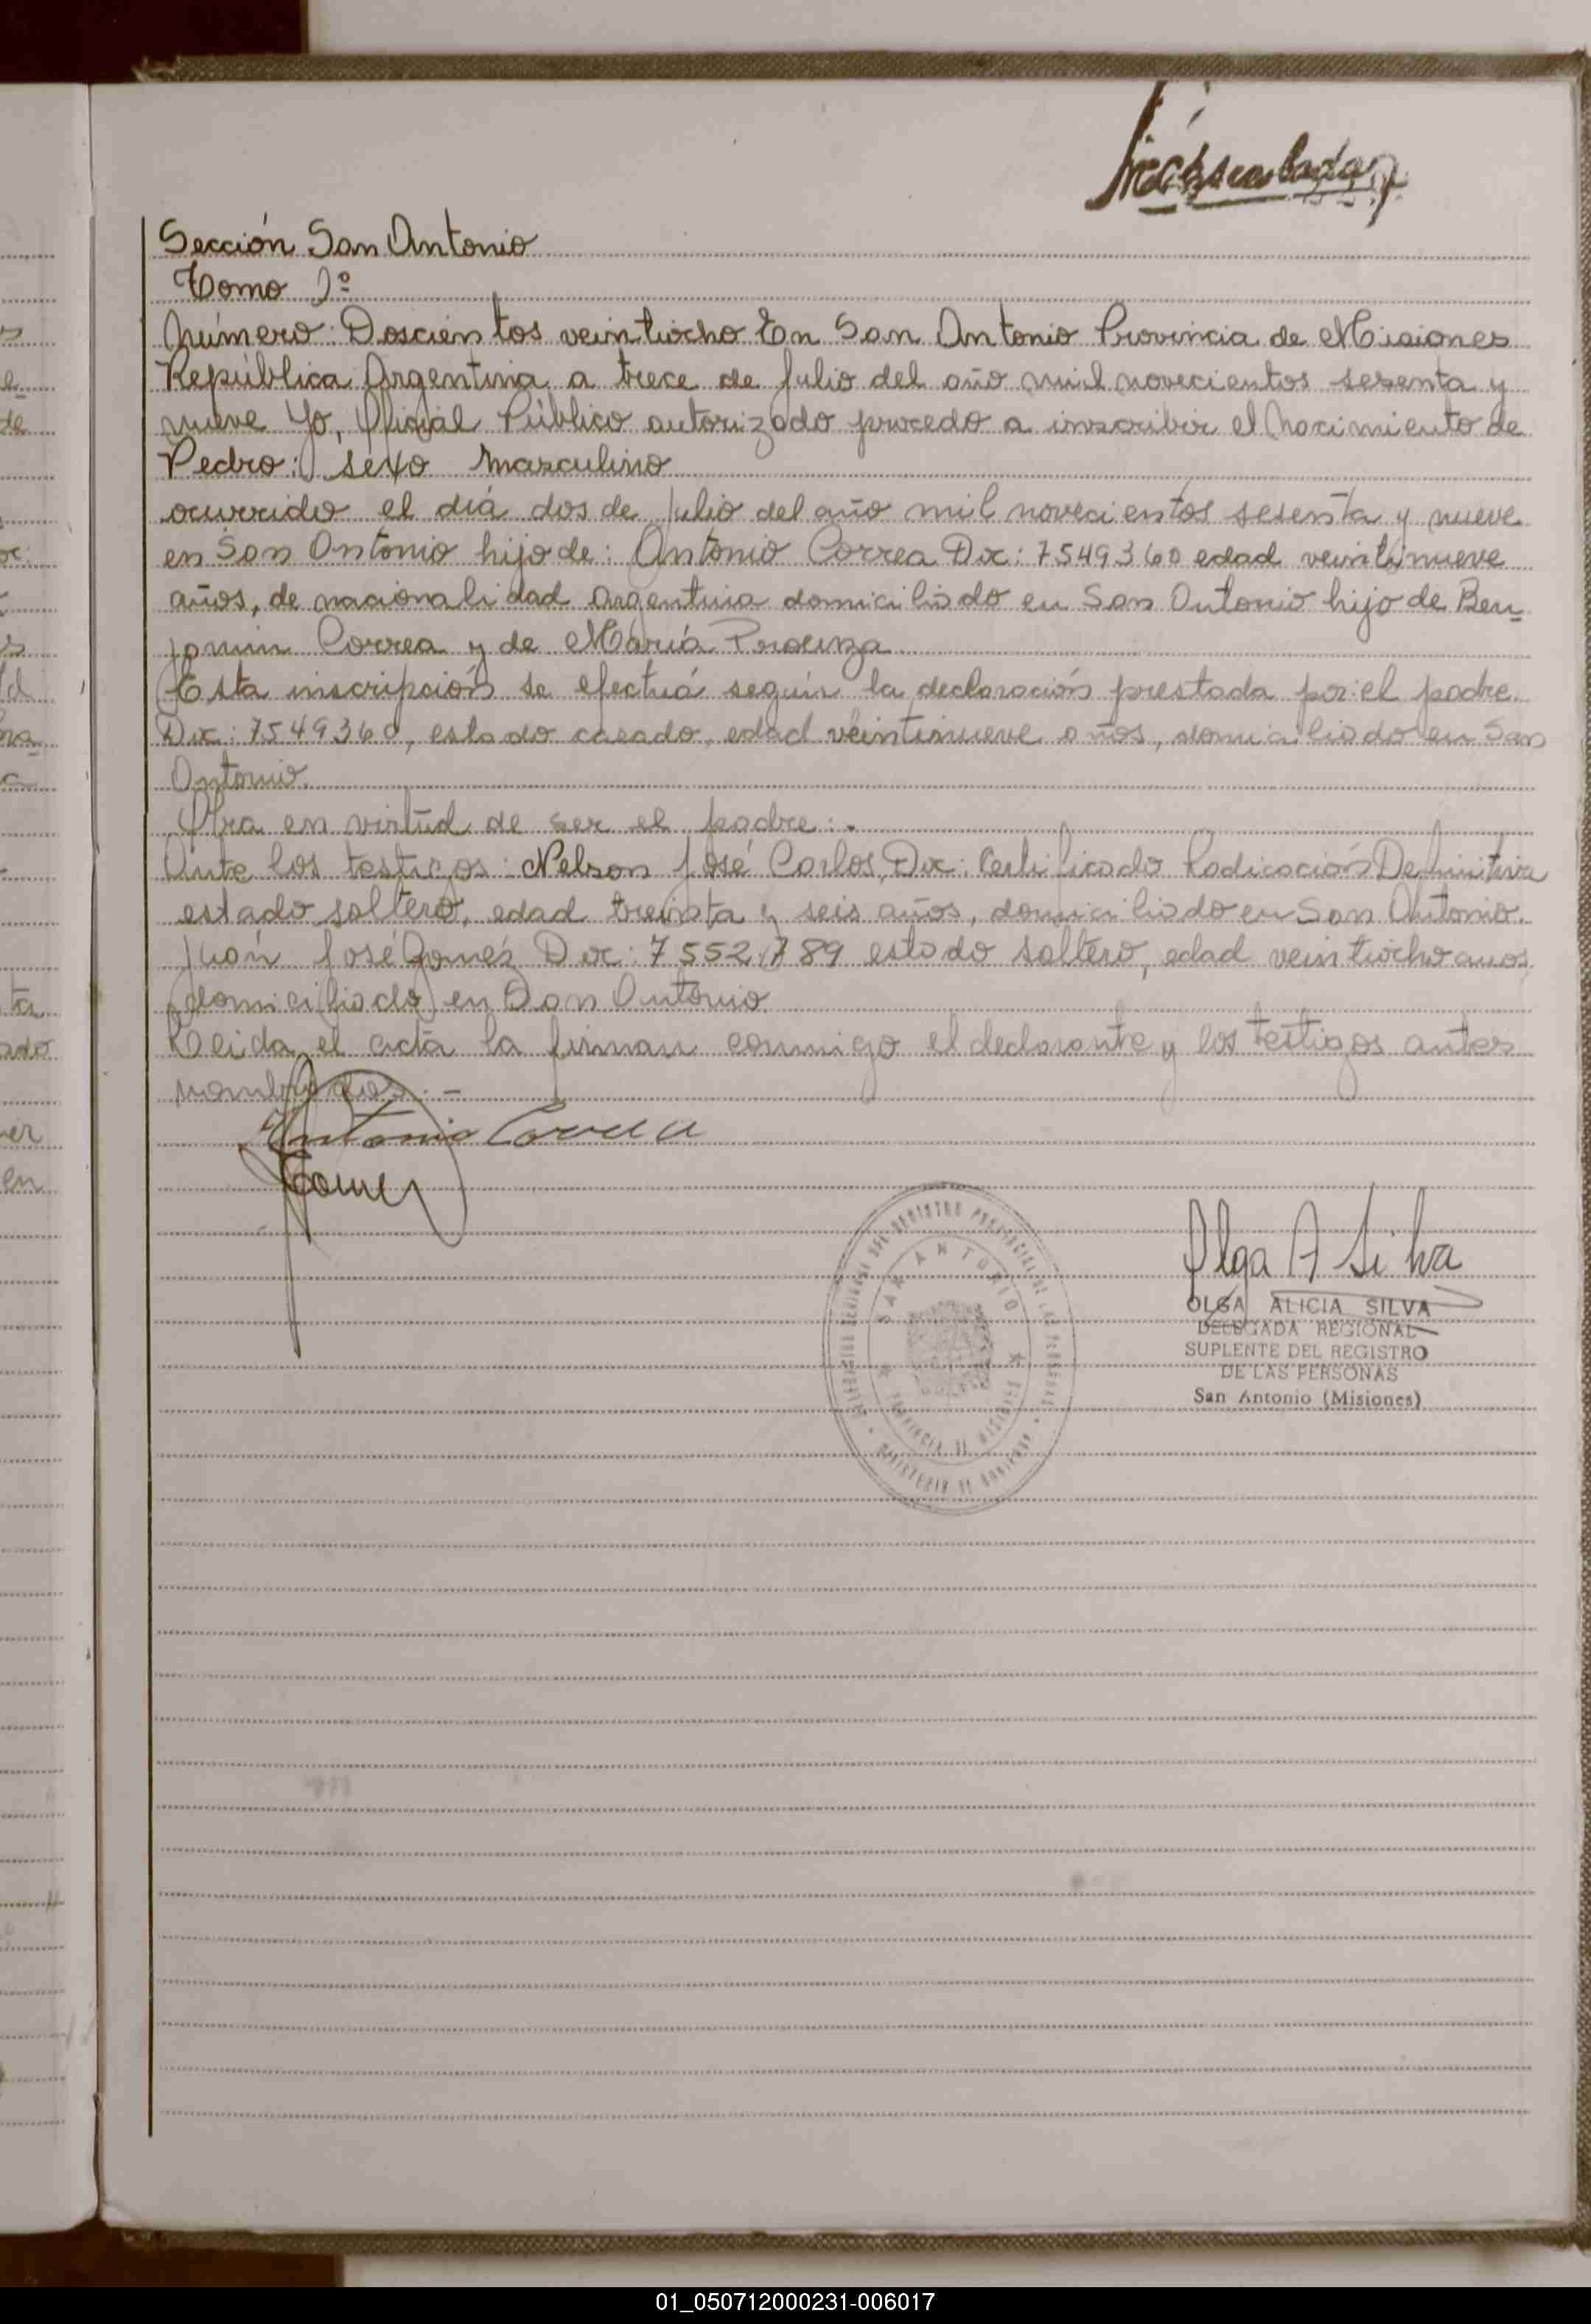 Sección San Antonio
Tomo 1º
Número: Doscientos veintiocho En San Antonio Provincia de Misiones
República Argentina a trece de Julio del año mil novecientos sesenta y
nueve Yo, Oficial Público autorizado procedo a inscribir el Nacimiento de
Pedro: sexo Masculino
ocurrido el día dos de Julio del año mil novecientos sesenta y nueve
en San Antonio hijo de: Antonio Correa Doc: 7549360 edad veintinueve
años, de nacionalidad argentina domiciliado en San Antonio hijo de Ben-
jamin Correa y de María
Esta inscripción se efectuá según la declaración prestada por el padre
Doc: 7549360, estado casado, edad veintinueve años, domiciliado en San
Antonio.
Obra en virtud de ser el padre:.
Ante los testigos: Nelson José Carlos, Doc: Certificado Radicación Definitiva
estado soltero, edad treinta y seis años, domiciliado en San Antonio.
Juan José Gomez Doc: 7552789 estado soltero, edad veintiocho años
domiciliado en San Antonio
Leida el acta la firman conmigo el declarante y los testigos antes
nombrados.-
Antonio Correa
Gomez
REGISTRO PROVINCIAL DE LAS PERSONAS
SAN ANTONIO
PROVINCIA DE MISIONES
MINISTERIO DE GOBIERNO
Olga A Silva
OLGA ALICIA SILVA
DELEGADA REGIONAL
SUPLENTE DEL REGISTRO
DE LAS PERSONAS
San Antonio (Misiones)
01_050712000231-006017